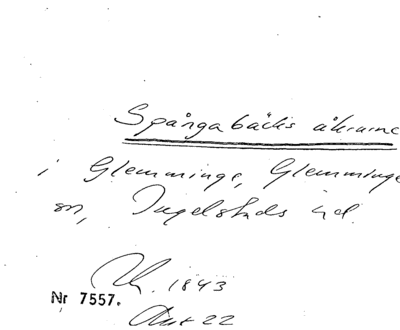 Spångabäcks åkrarne
i Glemminge, Glemminge
sn, Ingelstads hd.
Uh. 1843
Nr 7557.
Akt 22